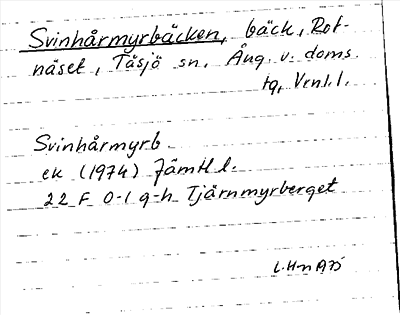 Svinhårmyrbäcken, bäck, Rot-
näset, Tåsjö sn, Ång. v. doms.
tg, Vrnl. l.
Svinhårmyrb.
ek (1974) Jämtl l.
22 F 0-1 g-h Tjärnmyrberget
L.Hn A75